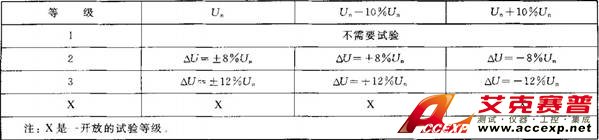 等 级 Un Un-10%Un Un+10%Un
1 不需要试验
2 ΔU=±8%Un ΔU=+8%Un ΔU=-8%Un
3 ΔU=±12%Un ΔU=+12%Un ΔU=-12%Un
X X X
注：X 是一开放的试验等级。
艾克赛普
测试·仪器·工控·集成
ACCEXP
www.accexp.com